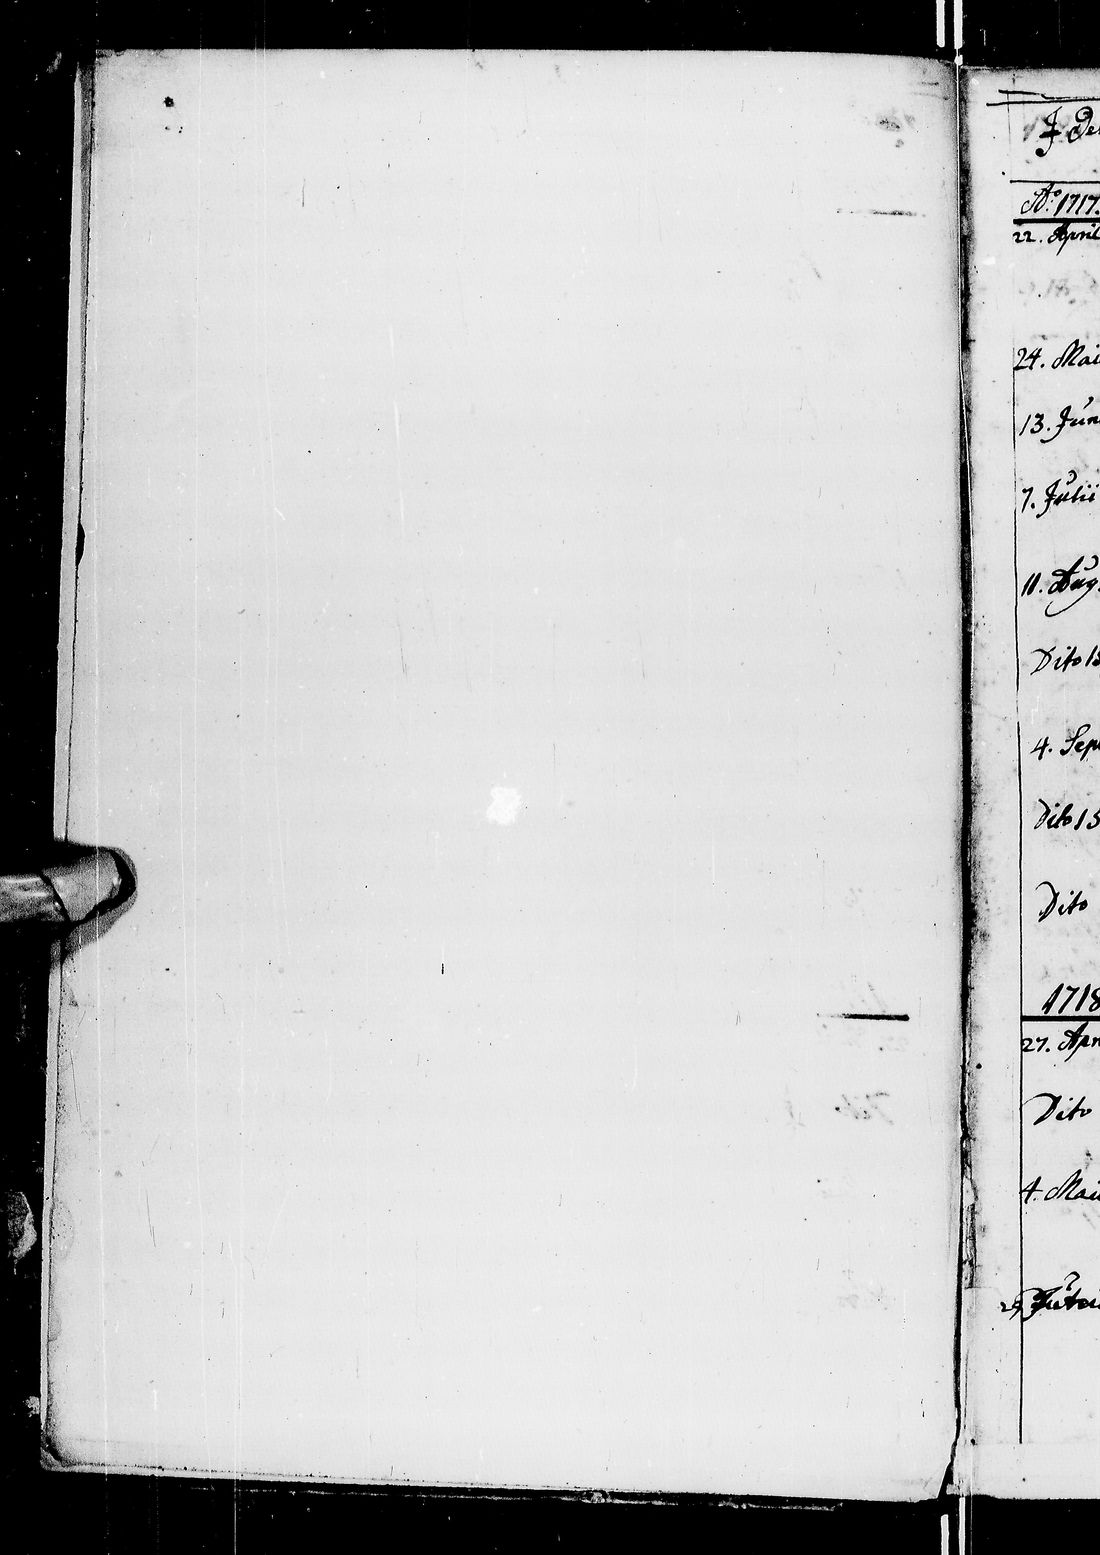 Ao. 1717.
22. April
24. Mai
13. Jun
7. Julii
11. Aug.
Dito 15
4. Sep
Dito 15
Dito
1718
27. Apr
Dito
4. Mai